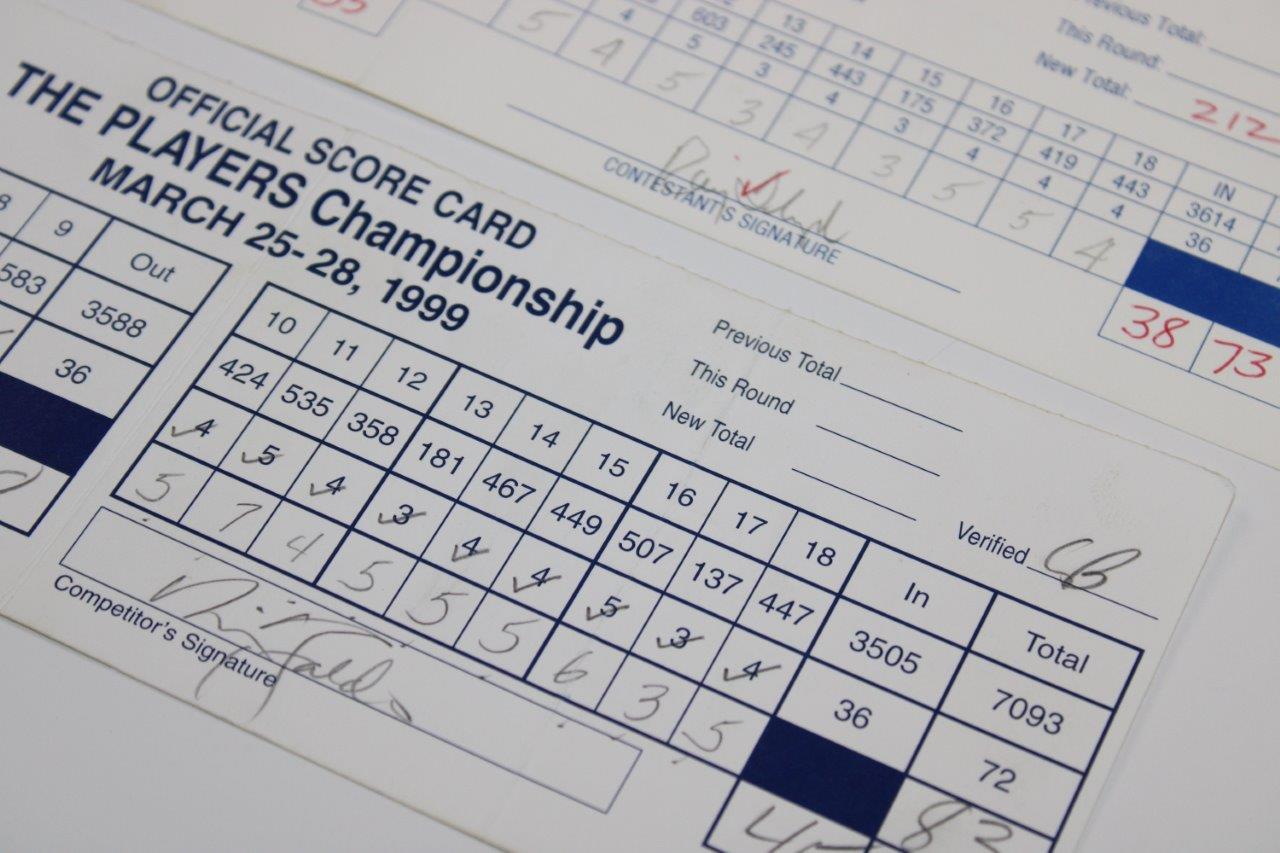 Previous Total:
This Round:
New Total: 212
13 14 15 16 17 18 IN
603 245 443 175 372 419 443 3614
4 5 3 4 3 4 4 4 36
5 4 5 3 4 3 5 5 4
38 73
CONTESTANT'S SIGNATURE
OFFICIAL SCORE CARD
THE PLAYERS Championship
MARCH 25-28, 1999
8 9 Out
583 3588
36
Previous Total
This Round
New Total
Verified CB
10 11 12 13 14 15 16 17 18 In Total
424 535 358 181 467 449 507 137 447 3505 7093
4 5 4 3 4 4 5 3 4 36 72
5 7 4 5 5 5 6 3 5
45 82
Nick Faldo
Competitor's Signature